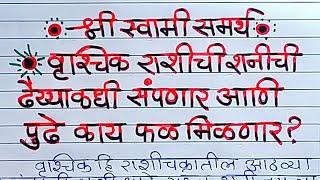 श्री स्वामी समर्थ
वृश्चिक राशीची शनीची
ढैय्याकधी संपणार आणि
पुढे काय फळ मिळणार?
वृश्चिक हि राशीचक्रातील आठव्या